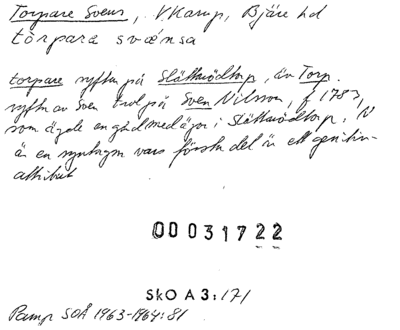 Torpare Svens, V. Karup, Bjäre hd
tòrpara svænsa
torpare syftar på Slättarödstorp, äv. Torp.
syftar av Sven trol på Sven Nilsson, f 1783,
som ägde en gård med ägor i Slättarödstorp. N
är en syntagm vars första del är ett genitiv-
attribut
00031722
SkO A3:171
Pamp SOÅ 1963-1964:81